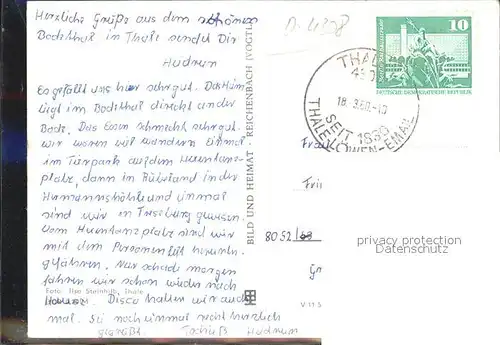 Herzliche Grüße aus dem schönen
Bodethal in Thale sendet Dir
Hudrun
Es gefällt uns hier sehr gut. Das Heim
liegt im Bodethal direkt an der
Bode. Das Essen schmeckt sehr gut.
wir waren viel wandern. Einmal
im Tierpark auf dem Hexentanz-
platz, dann in Rübeland in der
Hermannshöhle und einmal
sind wir in Treseburg gewesen.
Vom Hexentanzplatz sind wir
mit dem Personenlift herunter-
gefahren. Nur schade morgen
fahren wir schon wieder nach
Hause. Disco hatten wir auch
mal. Sei noch einmal recht herzlich
gegrüßt. Tschüß Hudrun
Foto: Ilse Steinhilb, Thale
BILD UND HEIMAT REICHENBACH (VOGTL
D-4308
10
DEUTSCHE DEMOKRATISCHE REPUBLIK
THALE
18. 3.80.-10
SEIT 1835
THALE-LÖWEN-EMAIL
Frau
8052
V 11 5
privacy protection
Datenschutz